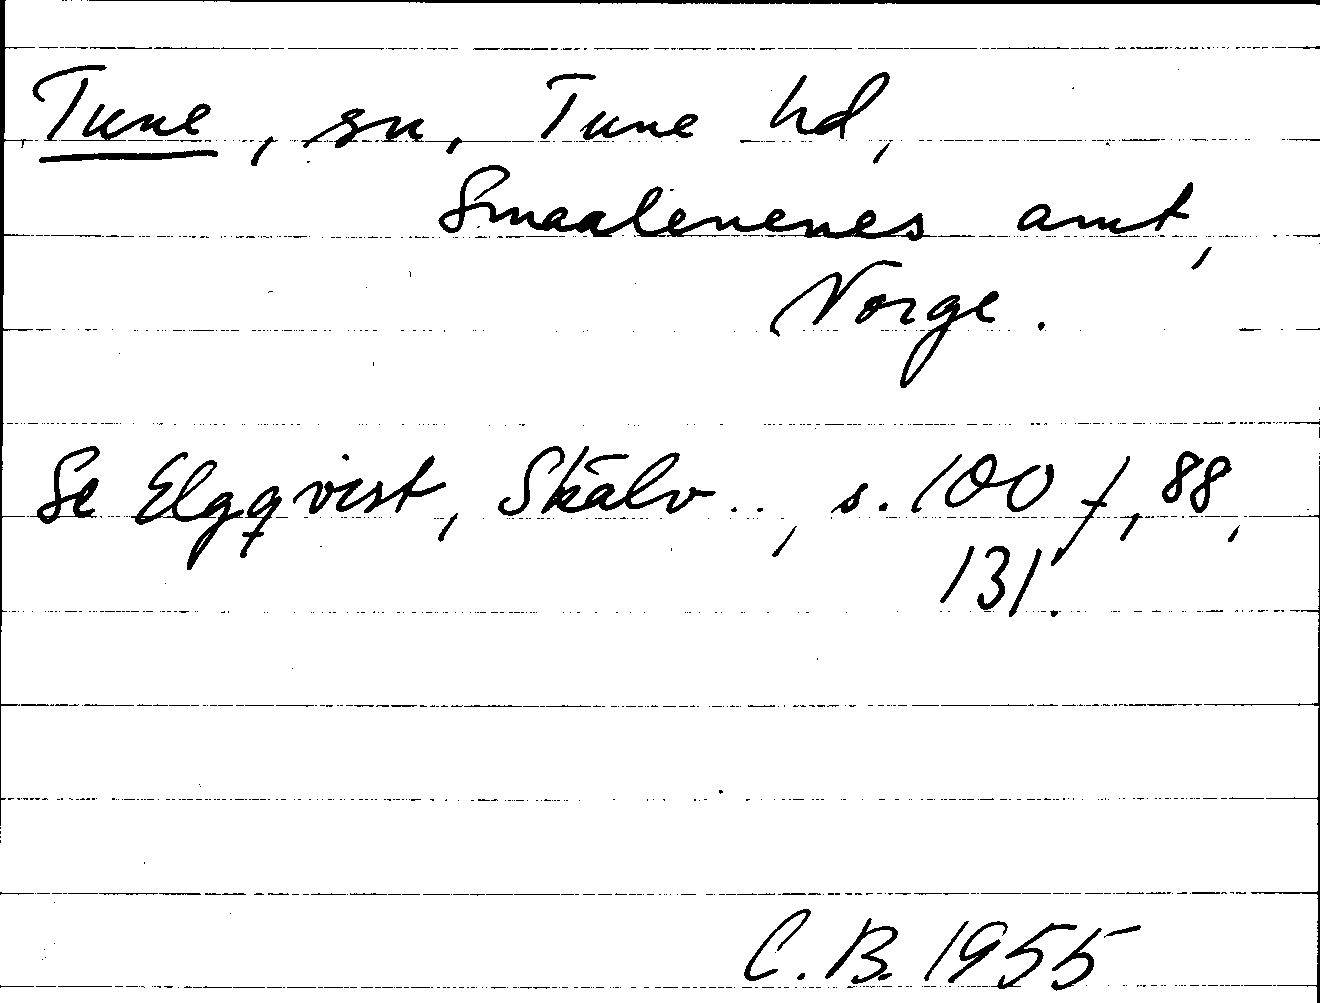 Tune, sn, Tune hd,
Smaalenenes amt,
Norge.
Se Elgqvist, Skälv.., s. 100 f, 88,
131.
C.B. 1955